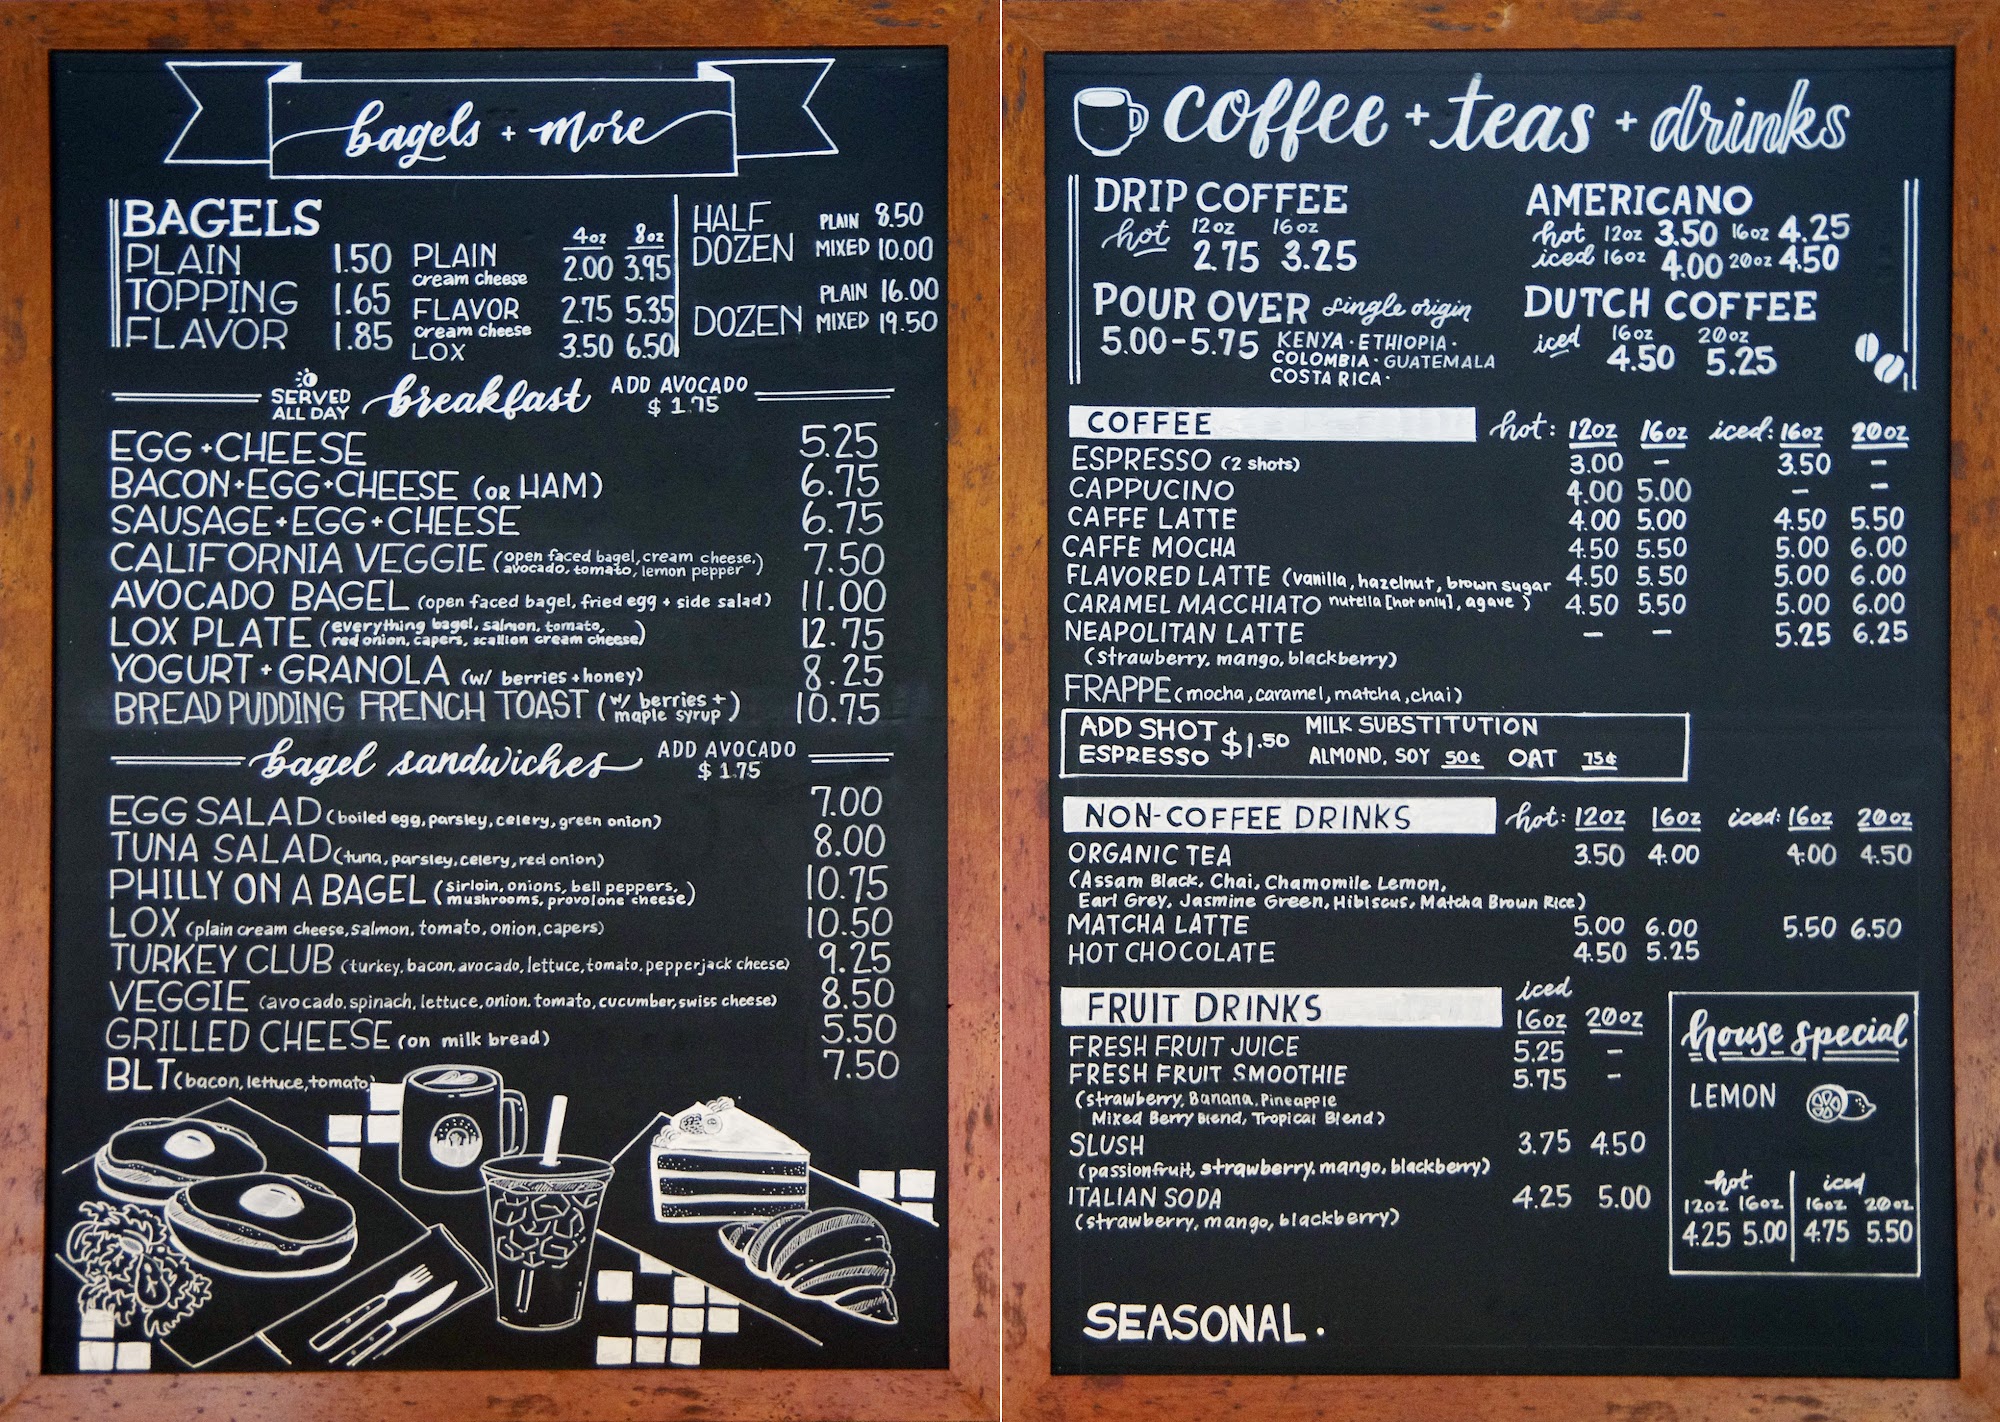 bagels + more
BAGELS
PLAIN 1.50
TOPPING 1.65
FLAVOR 1.85
4oz 8oz
PLAIN cream cheese 2.00 3.95
FLAVOR cream cheese 2.75 5.35
LOX 3.50 6.50
HALF DOZEN
PLAIN 8.50
MIXED 10.00
DOZEN
PLAIN 16.00
MIXED 19.50
SERVED ALL DAY
breakfast
ADD AVOCADO
$ 1.75
EGG + CHEESE 5.25
BACON + EGG + CHEESE (OR HAM) 6.75
SAUSAGE + EGG + CHEESE 6.75
CALIFORNIA VEGGIE (open faced bagel, cream cheese, avocado, tomato, lemon pepper) 7.50
AVOCADO BAGEL (open faced bagel, fried egg + side salad) 11.00
LOX PLATE (everything bagel, salmon, tomato, red onion, capers, scallion cream cheese) 12.75
YOGURT + GRANOLA (w/ berries + honey) 8.25
BREAD PUDDING FRENCH TOAST (w/ berries + maple syrup) 10.75
bagel sandwiches
ADD AVOCADO
$ 1.75
EGG SALAD (boiled egg, parsley, celery, green onion) 7.00
TUNA SALAD (tuna, parsley, celery, red onion) 8.00
PHILLY ON A BAGEL (sirloin, onions, bell peppers, mushrooms, provolone cheese) 10.75
LOX (plain cream cheese, salmon, tomato, onion, capers) 10.50
TURKEY CLUB (turkey, bacon, avocado, lettuce, tomato, pepperjack cheese) 9.25
VEGGIE (avocado, spinach, lettuce, onion, tomato, cucumber, swiss cheese) 8.50
GRILLED CHEESE (on milk bread) 5.50
BLT (bacon, lettuce, tomato) 7.50
coffee + teas + drinks
DRIP COFFEE
hot 12oz 16oz
2.75 3.25
POUR OVER single origin
5.00-5.75 KENYA · ETHIOPIA ·
COLOMBIA · GUATEMALA
COSTA RICA ·
AMERICANO
hot 12oz 3.50 16oz 4.25
iced 16oz 4.00 20oz 4.50
DUTCH COFFEE
iced 16oz 20oz
4.50 5.25
COFFEE hot: 12oz 16oz iced: 16oz 20oz
ESPRESSO (2 shots) 3.00 - 3.50 -
CAPPUCINO 4.00 5.00 - -
CAFFE LATTE 4.00 5.00 4.50 5.50
CAFFE MOCHA 4.50 5.50 5.00 6.00
FLAVORED LATTE (vanilla, hazelnut, brown sugar 4.50 5.50 5.00 6.00
CARAMEL MACCHIATO nutella [hot only], agave) 4.50 5.50 5.00 6.00
NEAPOLITAN LATTE - - 5.25 6.25
(strawberry, mango, blackberry)
FRAPPE (mocha, caramel, matcha, chai)
ADD SHOT ESPRESSO $1.50
MILK SUBSTITUTION
ALMOND, SOY 50¢ OAT 75¢
NON-COFFEE DRINKS hot: 12oz 16oz iced: 16oz 20oz
ORGANIC TEA 3.50 4.00 4.00 4.50
(Assam Black, Chai, Chamomile Lemon,
Earl Grey, Jasmine Green, Hibiscus, Matcha Brown Rice)
MATCHA LATTE 5.00 6.00 5.50 6.50
HOT CHOCOLATE 4.50 5.25
FRUIT DRINKS iced 16oz 20oz
FRESH FRUIT JUICE 5.25 -
FRESH FRUIT SMOOTHIE 5.75 -
(strawberry, Banana, Pineapple
Mixed Berry Blend, Tropical Blend)
SLUSH 3.75 4.50
(passionfruit, strawberry, mango, blackberry)
ITALIAN SODA 4.25 5.00
(strawberry, mango, blackberry)
house special
LEMON
hot iced
12oz 16oz 16oz 20oz
4.25 5.00 4.75 5.50
SEASONAL.